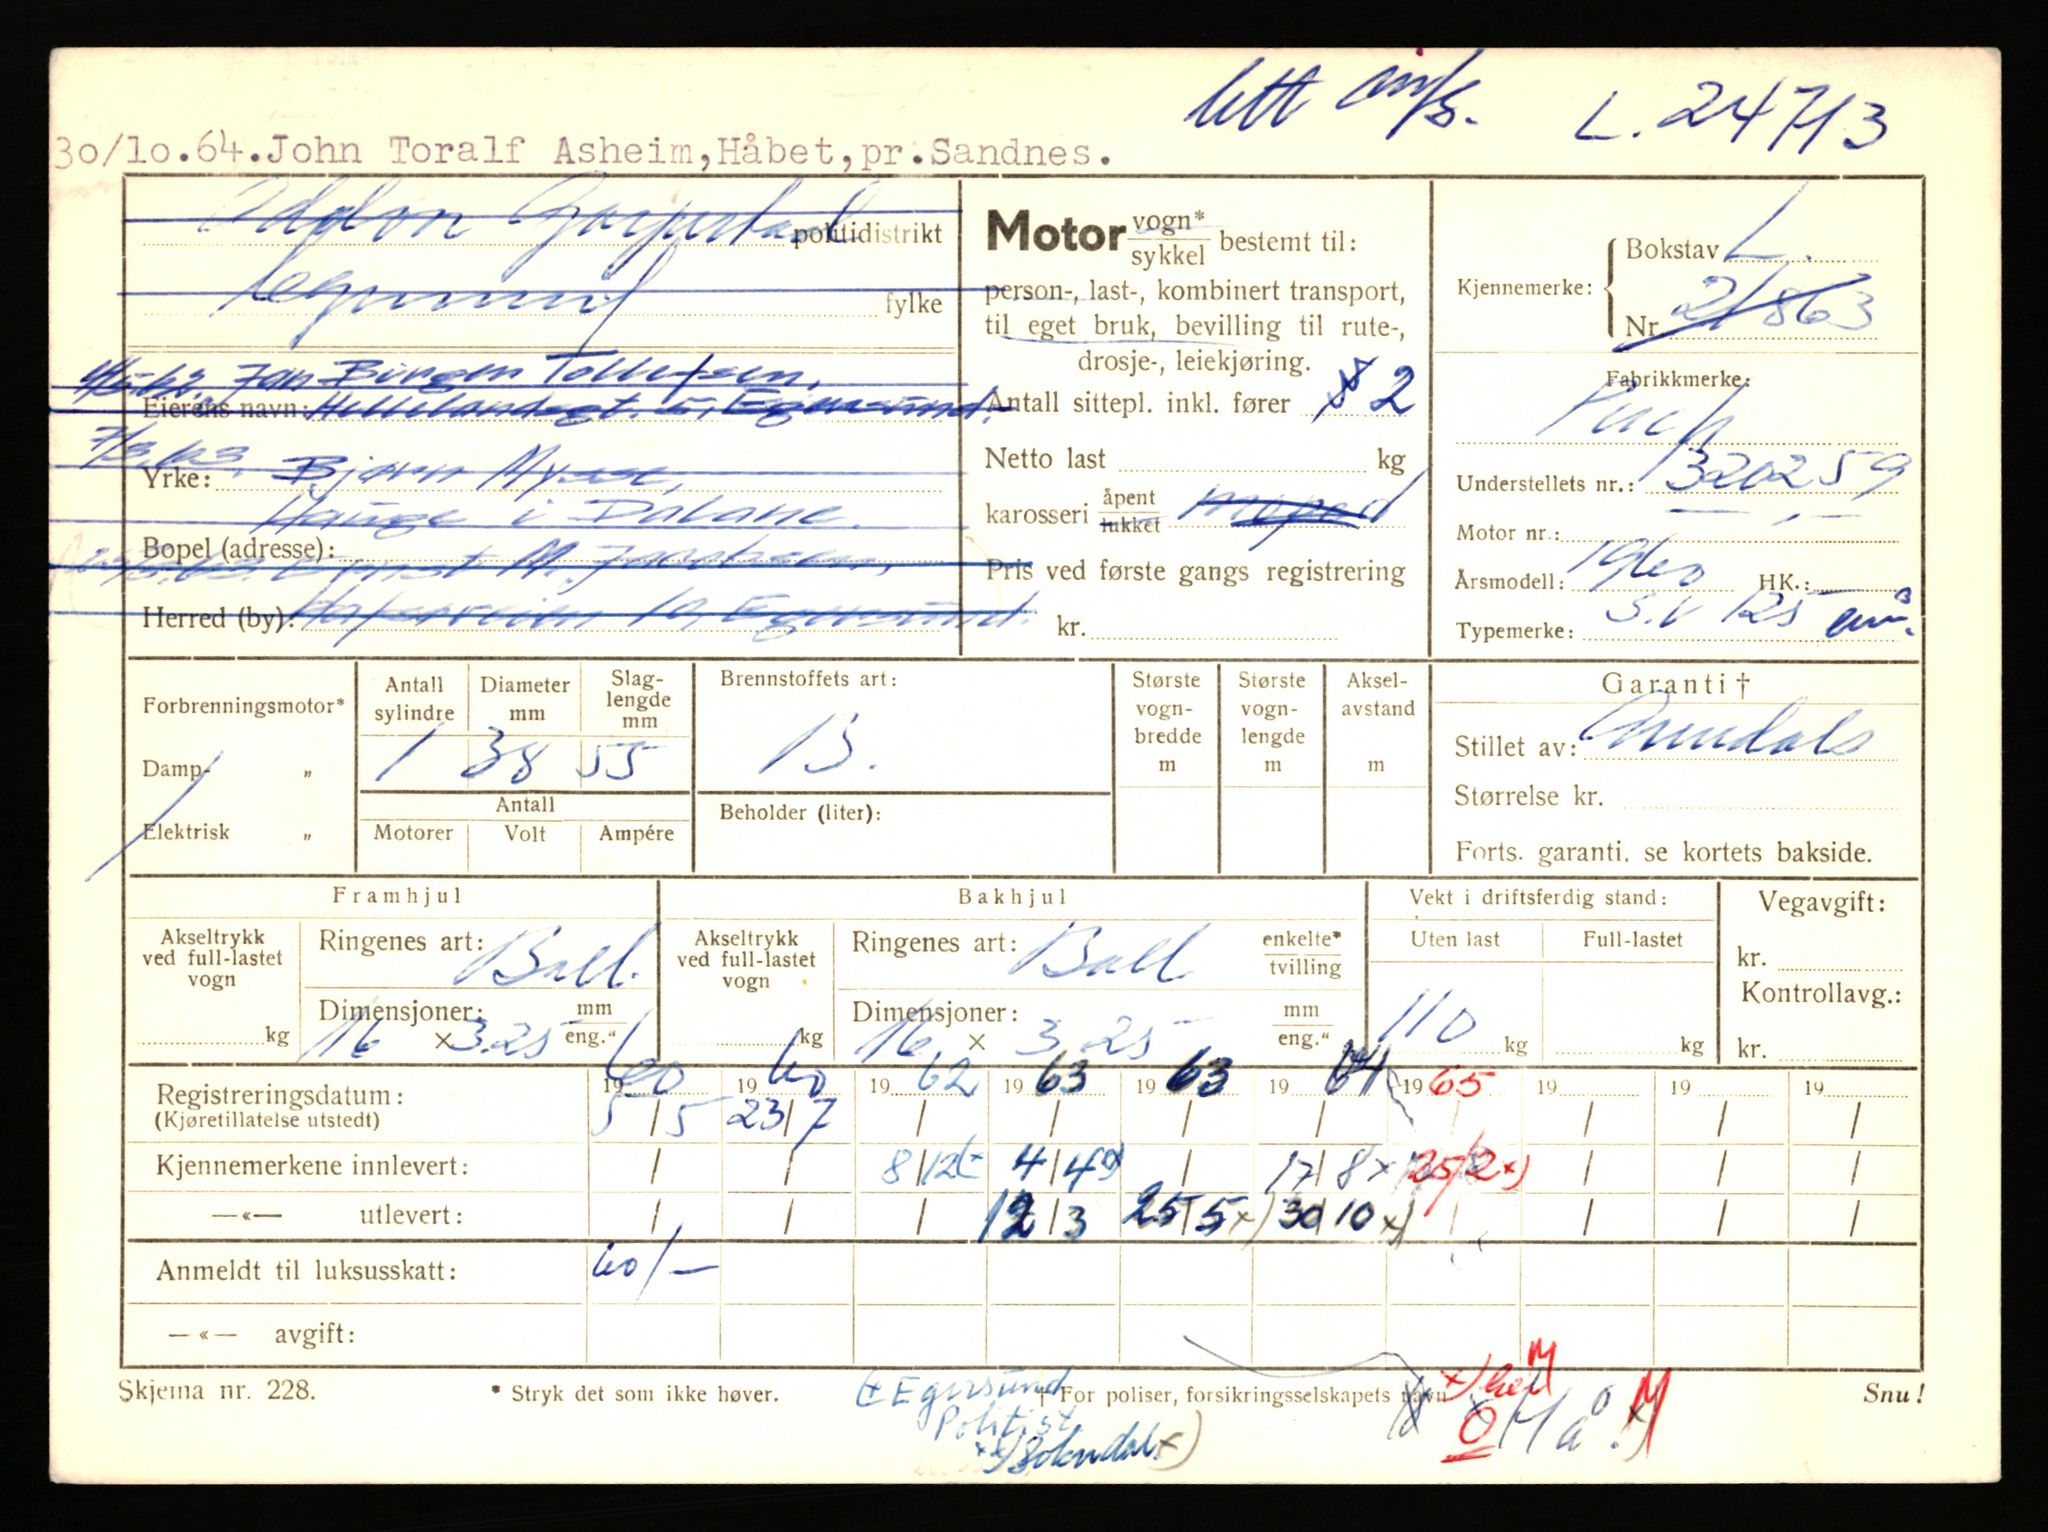 lett m/s. L. 24713
30/10.64. John Toralf Asheim, Håbet, pr. Sandnes.
politidistrikt
fylke
Jan Birger Tollefsen,
Eierens navn: Hellelandsgt. 5, Egersund.
7/3.63.
Yrke: Bjørn
Hauge i Dalane.
Bopel (adresse):
M. Jacobsen,
Herred (by): 10, Egersund.
Motor vogn* / sykkel bestemt til:
person-, last-, kombinert transport,
til eget bruk, bevilling til rute-,
drosje-, leiekjøring.
Antall sittepl. inkl. fører 2
Netto last kg
karosseri åpent / lukket moped
Pris ved første gangs registrering
kr.
Kjennemerke: Bokstav L.
Nr. 21863
Fabrikkmerke:
Puch
Understellets nr.: 320259
Motor nr.:
Årsmodell: 1960 HK.:
Typemerke: S.V 125 cm³.
Forbrenningsmotor*
Damp- „
Elektrisk „
Antall sylindre Diameter mm Slaglengde mm
1 38 55
Antall
Motorer Volt Ampére
Brennstoffets art:
B.
Beholder (liter):
Største vognbredde m
Største vognlengde m
Akselavstand m
Garanti †
Stillet av:
Størrelse kr.
Forts. garanti, se kortets bakside.
Framhjul
Akseltrykk ved full-lastet vogn kg
Ringenes art: Ball.
Dimensjoner: 16 × 3.25 mm / eng."
Bakhjul
Akseltrykk ved full-lastet vogn kg
Ringenes art: Ball enkelte* / tvilling
Dimensjoner: 16 × 3.25 mm / eng."
Vekt i driftsferdig stand:
Uten last Full-lastet
110 kg kg
Vegavgift:
kr.
Kontrollavg.:
kr.
Registreringsdatum: 1960 1960 1962 1963 1963 1964 1965 19 19 19
(Kjøretillatelse utstedt) 5/5 23/7 / / / / / / / /
Kjennemerkene innlevert: / / 8/12 (x 4/4 x) / 17/8 x) 25/2 x) / / /
—«— utlevert: / / / 12/3 25/5 x) 30/10 x) / / / /
Anmeldt til luksusskatt: 60/-
—«— avgift:
Skjema nr. 228.
* Stryk det som ikke høver.
† For poliser, forsikringsselskapets navn
Snu!
(x Egersund
Politist.
xx) Sokndal x)